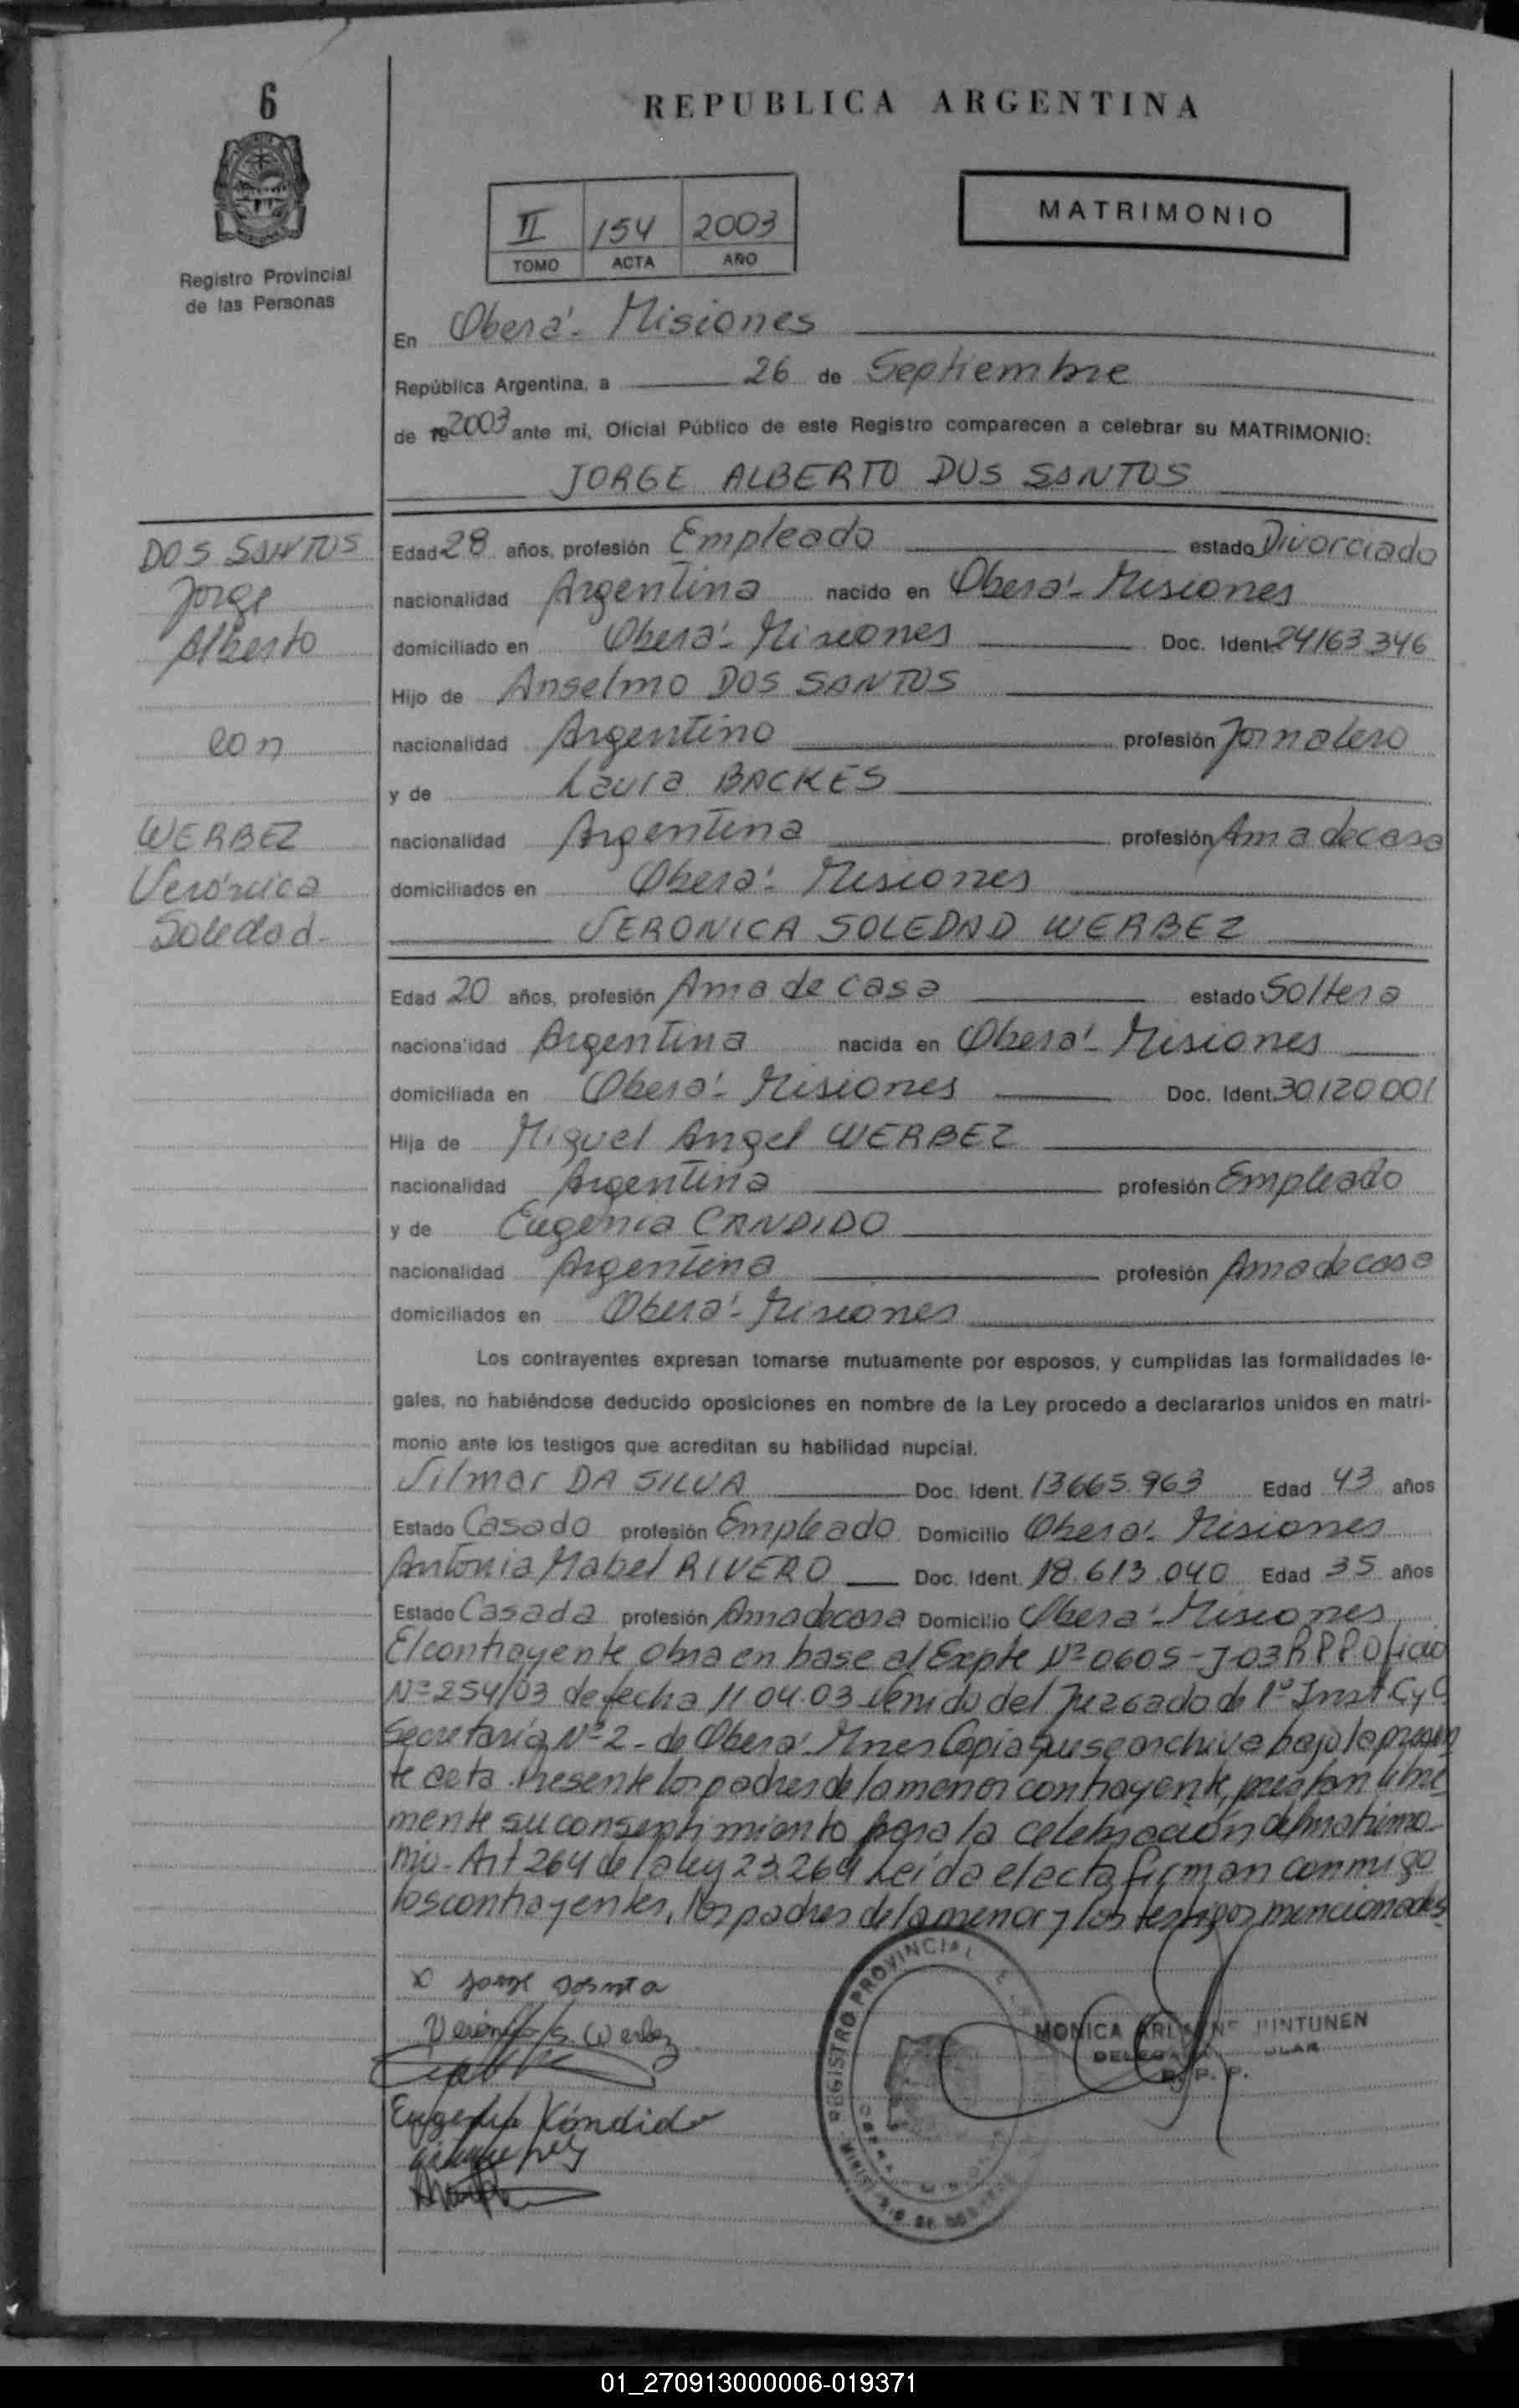 6
REPUBLICA ARGENTINA
MATRIMONIO
II 154 2003
TOMO ACTA AÑO
Registro Provincial
de las Personas
En Oberá - Misiones
República Argentina, a 26 de Septiembre
de 19 2003 ante mi, Oficial Público de este Registro comparecen a celebrar su MATRIMONIO:
JORGE ALBERTO DOS SANTOS
DOS SANTOS
Jorge
Alberto
con
WERBEZ
Verónica
Soledad.-
Edad 28 años, profesión Empleado estado Divorciado
nacionalidad Argentina nacido en Oberá - Misiones
domiciliado en Oberá - Misiones Doc. Ident. 24163.346
Hijo de Anselmo DOS SANTOS
nacionalidad Argentino profesión Jornalero
y de Laura BACKES
nacionalidad Argentina profesión Ama de casa
domiciliados en Oberá - Misiones
VERONICA SOLEDAD WERBEZ
Edad 20 años, profesión Ama de casa estado Soltera
nacionalidad Argentina nacida en Oberá - Misiones
domiciliada en Oberá - Misiones Doc. Ident. 30120001
Hija de Miguel Angel WERBEZ
nacionalidad Argentina profesión Empleado
y de Eugenia CANDIDO
nacionalidad Argentina profesión Ama de casa
domiciliados en Oberá - Misiones
Los contrayentes expresan tomarse mutuamente por esposos, y cumplidas las formalidades le-
gales, no habiéndose deducido oposiciones en nombre de la Ley procedo a declararlos unidos en matri-
monio ante los testigos que acreditan su habilidad nupcial.
Vilmar DA SILVA Doc. Ident. 13665.963 Edad 43 años
Estado Casado profesión Empleado Domicilio Oberá - Misiones
Antonia Mabel RIVERO Doc. Ident. 18.613.040 Edad 35 años
Estado Casada profesión Ama de casa Domicilio Oberá - Misiones
El contrayente obra en base al Expte Nº 0605-J-03 R P P Oficio
Nº 254/03 de fecha 11.04.03 venido del Juzgado de 1º Inst C y C
Secretaría Nº 2 - de Oberá Mnes Copia que se archiva bajo la presen
te acta. Presente los padres de la menor contrayente, prestan libre
mente su consentimiento para la celebración del matrimo-
nio - Art 264 de la ley 23.264 Leída el acta firman conmigo
los contrayentes, los padres de la menor y los testigos mencionados
Jorge
Veronica S. Werbez
Eugenia Kándido
REGISTRO PROVINCIAL
MONICA PINTUNEN
R. P. P.
01_270913000006-019371